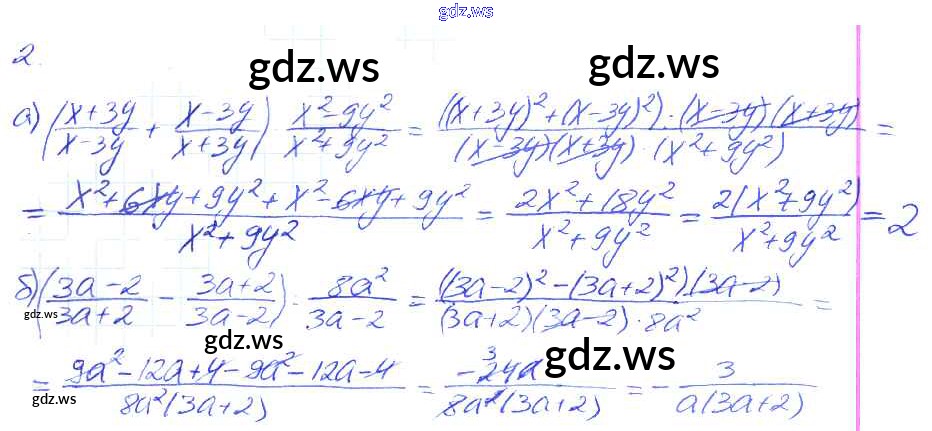 gdz.ws
2.
gdz.ws gdz.ws
а) ((x+3y)/(x-3y) + (x-3y)/(x+3y)) · (x²-9y²)/(x²+9y²) = (((x+3y)²+(x-3y)²)·(x-3y)(x+3y))/((x-3y)(x+3y)·(x²+9y²)) =
= (x²+6xy+9y²+x²-6xy+9y²)/(x²+9y²) = (2x²+18y²)/(x²+9y²) = 2(x²+9y²)/(x²+9y²) = 2
б) ((3a-2)/(3a+2) - (3a+2)/(3a-2)) : 8a²/(3a-2) = (((3a-2)²-(3a+2)²)(3a-2))/((3a+2)(3a-2)·8a²) =
gdz.ws gdz.ws gdz.ws
= (9a²-12a+4-9a²-12a-4)/(8a²(3a+2)) = -24a/(8a²(3a+2)) = -3/(a(3a+2))
gdz.ws gdz.ws